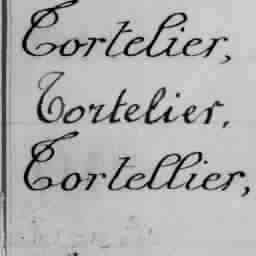 Tortelier,
Tortelier.
Tortellier,